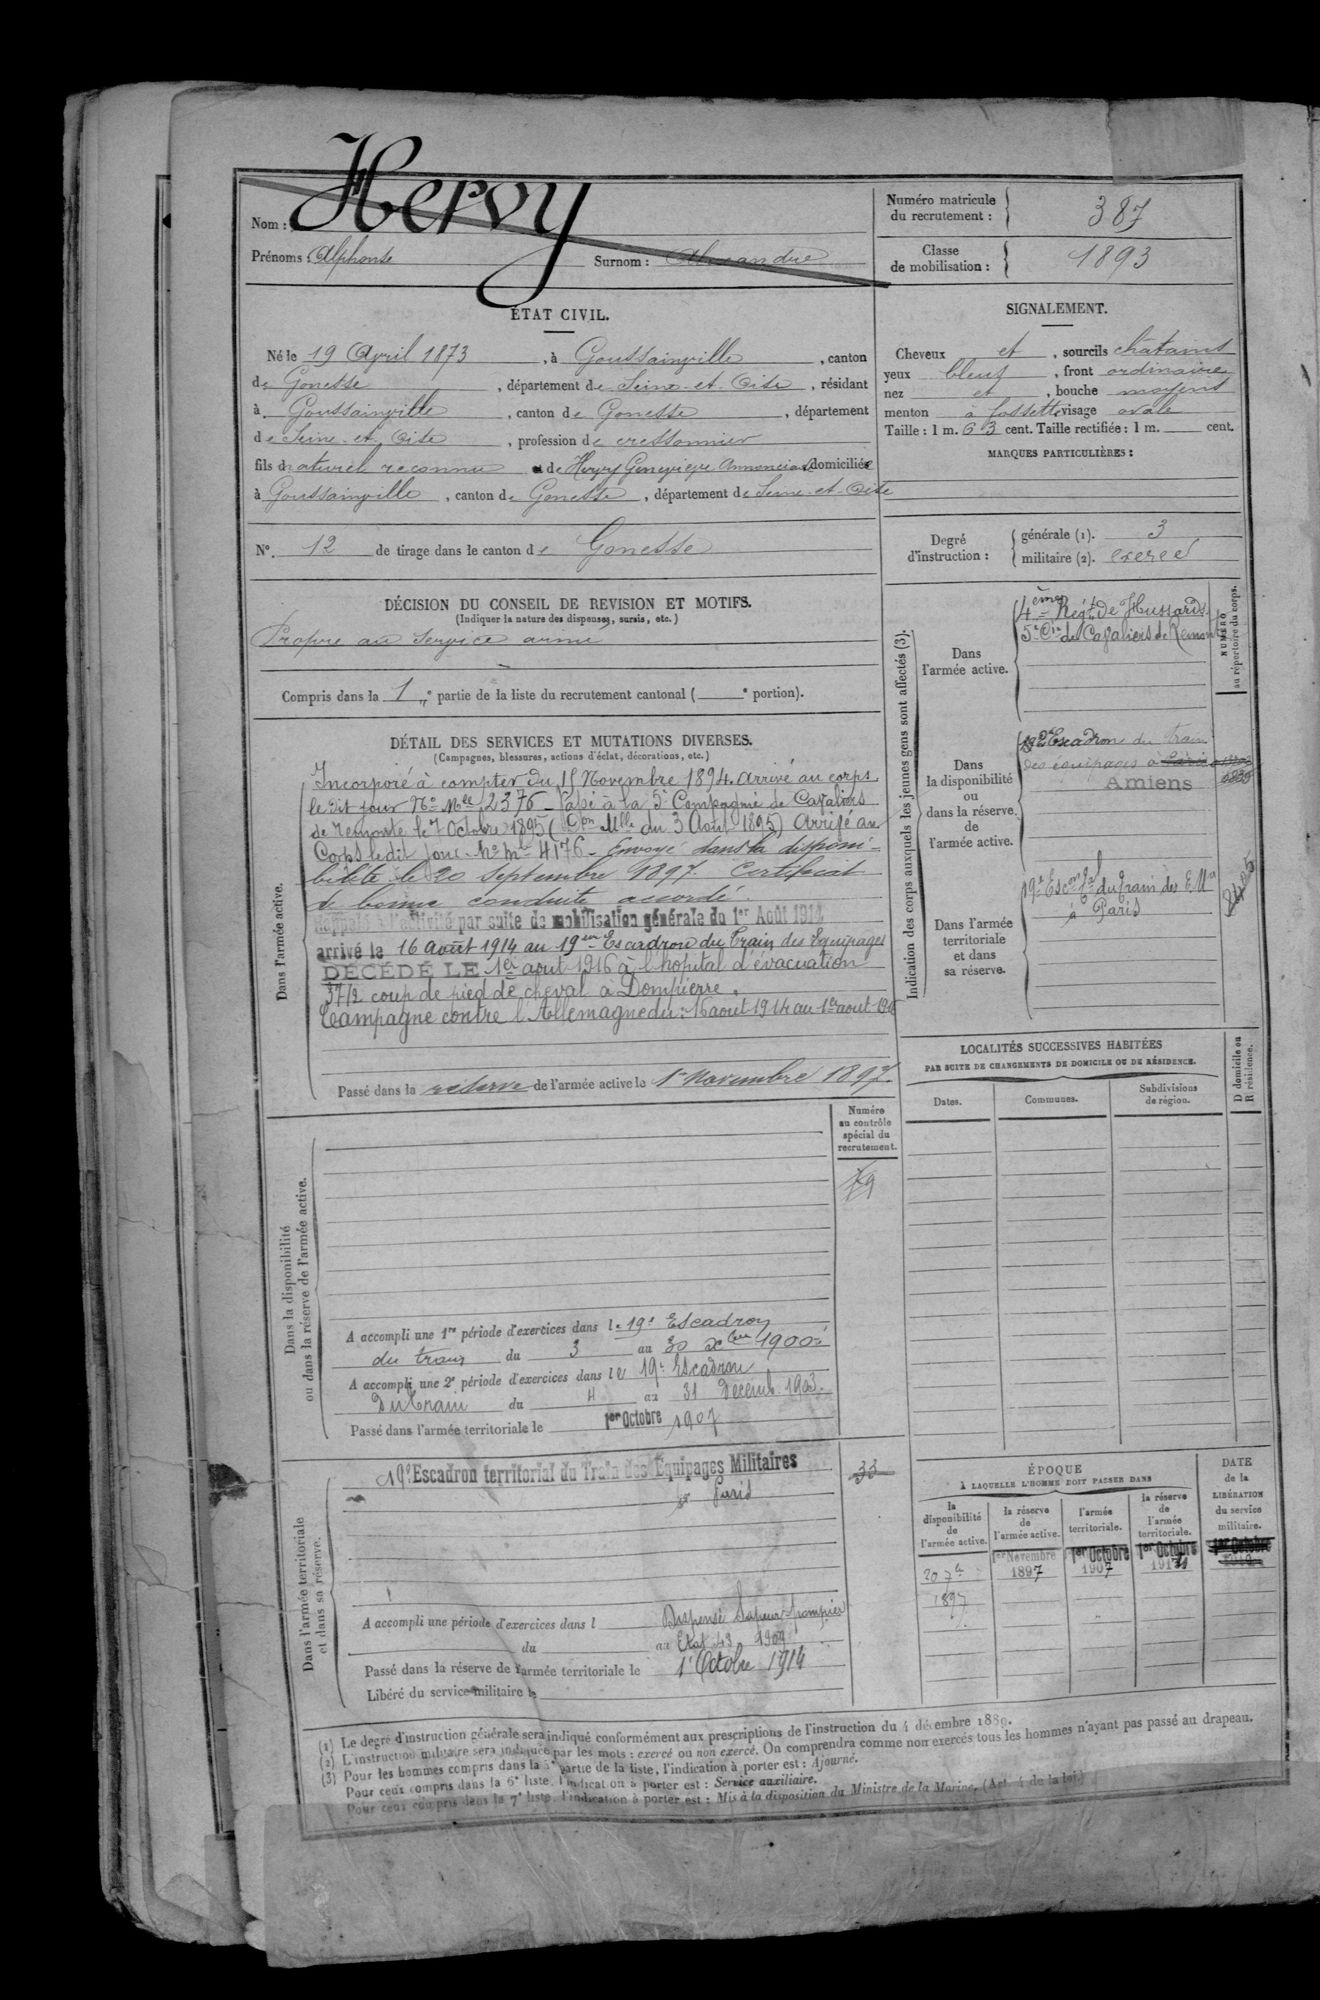 Nom : Hervy
Prénoms : Alphonse Surnom : Alexandre
Numéro matricule du recrutement : 387
Classe de mobilisation : 1893
ÉTAT CIVIL.
Né le 19 Avril 1873, à Goussainville, canton
de Gonesse, département de Seine-et-Oise, résidant
à Goussainville, canton de Gonesse, département
de Seine-et-Oise, profession de cressonnier
fils d naturel reconnu et de Hervy Geneviève Annonciade domiciliée
à Goussainville, canton de Gonesse, département de Seine-et-Oise
N°. 12 de tirage dans le canton de Gonesse
SIGNALEMENT.
Cheveux et, sourcils chatains
yeux bleus, front ordinaire
nez et, bouche moyens
menton à fossette visage ovale
Taille : 1 m. 63 cent. Taille rectifiée : 1 m. cent.
MARQUES PARTICULIÈRES :
Degré d'instruction :
générale (1). 3
militaire (2). exercé
DÉCISION DU CONSEIL DE REVISION ET MOTIFS.
(Indiquer la nature des dispenses, sursis, etc.)
Propre au service armé
Compris dans la 1re partie de la liste du recrutement cantonal ( e portion).
DÉTAIL DES SERVICES ET MUTATIONS DIVERSES.
(Campagnes, blessures, actions d'éclat, décorations, etc.)
Dans l'armée active.
Incorporé à compter du 15 Novembre 1894. Arrivé au corps
le dit jour No Mle 2376 - Passé à la 5e Compagnie de Cavaliers
de remonte le 7 Octobre 1895 (Don Mlle du 3 Août 1895) Arrivé au
Corps le dit jour. No Mle 4176 - Envoyé dans la disponi-
bilité le 20 Septembre 1897. Certificat
de bonne conduite accordé.
Rappelé à l'activité par suite de mobilisation générale du 1er Août 1914
arrivé le 16 août 1914 au 19em Escadron du Train des Equipages
DÉCÉDÉ LE 1er aout 1916 à l'hopital d'évacuation
37/2 coup de pied de cheval à Dompierre.
Campagne contre l'Allemagne du : 16 aout 1914 au 1er aout 1916
Passé dans la réserve de l'armée active le 1er Novembre 1897.
Indication des corps auxquels les jeunes gens sont affectés (3).
NUMÉRO au répertoire du corps.
Dans l'armée active.
4ème Régt de Hussards.
5e Cie de Cavaliers de Remonte
Dans la disponibilité ou dans la réserve de l'armée active.
19e Escadron du Train
des équipages à Paris
Amiens
Dans l'armée territoriale et dans sa réserve.
19e Escon tal du train des E. Mres
à Paris
LOCALITÉS SUCCESSIVES HABITÉES
PAR SUITE DE CHANGEMENTS DE DOMICILE OU DE RÉSIDENCE.
Dates. Communes. Subdivisions de région. D domicile ou R résidence.
Numéro au contrôle spécial du recrutement.
Dans la disponibilité ou dans la réserve de l'armée active.
A accompli une 1re période d'exercices dans le 19e Escadron
du train du 3 au 30 Xbre 1900
A accompli une 2e période d'exercices dans le 19e Escadron
Du Train du 4 au 31 Décemb. 1903.
Passé dans l'armée territoriale le 1er Octobre 1907
Dans l'armée territoriale et dans sa réserve.
19e Escadron territorial du Train des Equipages Militaires 33
à Paris
A accompli une période d'exercices dans l Dispensé Sapeur-pompier
du au Etat 43 1909
Passé dans la réserve de l'armée territoriale le 1er Octobre 1914
Libéré du service militaire le
ÉPOQUE
À LAQUELLE L'HOMME DOIT PASSER DANS
la disponibilité de l'armée active. la réserve de l'armée active. l'armée territoriale. la réserve de l'armée territoriale.
DATE de la LIBÉRATION du service militaire.
20 7bre 1897 1er Novembre 1897 1er Octobre 1907 1er Octobre 1er Octobre
(1) Le degré d'instruction générale sera indiqué conformément aux prescriptions de l'instruction du 4 décembre 1889.
(2) L'instruction militaire sera indiquée par les mots : exercé ou non exercé. On comprendra comme non exercés tous les hommes n'ayant pas passé au drapeau.
(3) Pour les hommes compris dans la 5e partie de la liste, l'indication à porter est : Ajourné.
Pour ceux compris dans la 6e liste, l'indication à porter est : Service auxiliaire.
Pour ceux compris dans la 7e liste, l'indication à porter est : Mis à la disposition du Ministre de la Marine. (Art. 4 de la loi.)